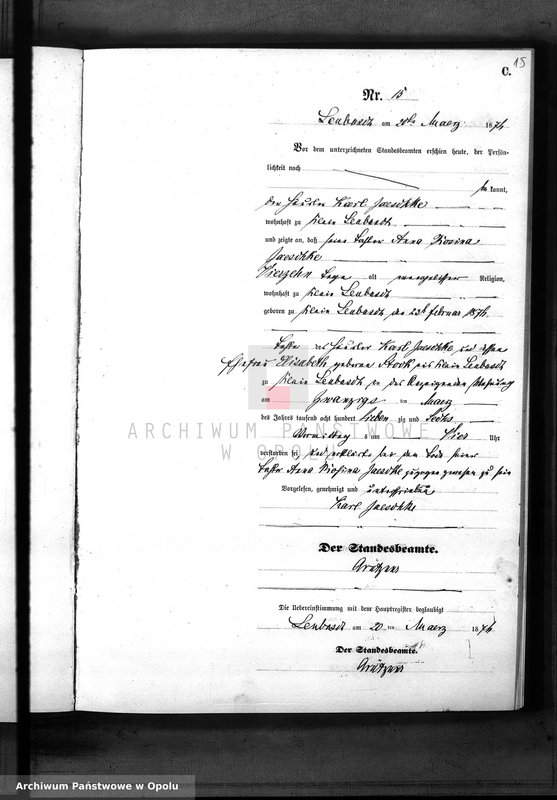 15
C.
Nr. 15
Leubusch am 20ten Maerz 1876
Vor dem unterzeichneten Standesbeamten erschien heute, der Persön-
lichkeit nach
kannt,
der Häusler Karl Jaeschke
wohnhaft zu Klein Leubusch
und zeigte an, daß seine Tochter Anna Rosina
Jaeschke
Vierzehn Tage alt evangelischer Religion,
wohnhaft zu Klein Leubusch
geboren zu Klein Leubusch den Februar 1876
Tochter des Häusler Karl Jaeschke und dessen
Ehefrau Elisabeth geboren Stork aus Klein Leubusch
zu Klein Leubusch in des Anzeigenden Wohnung
am Zwanzigs ten Maerz
des Jahres tausend acht hundert sieben zig und Sechs
Vormittag s um Vier Uhr
verstorben sei, und erklärte bei dem Tode seiner
Tochter Anna Rosina Jaeschke zugegen gewesen zu sein
Vorgelesen, genehmigt und unterschrieben
Karl Jaeschke
Der Standesbeamte.
Die Uebereinstimmung mit dem Hauptregister beglaubigt
Leubusch am 20 ten Maerz 1876
Der Standesbeamte.
ARCHIWUM PAŃSTWOWE
W OPOLU
Archiwum Państwowe w Opolu